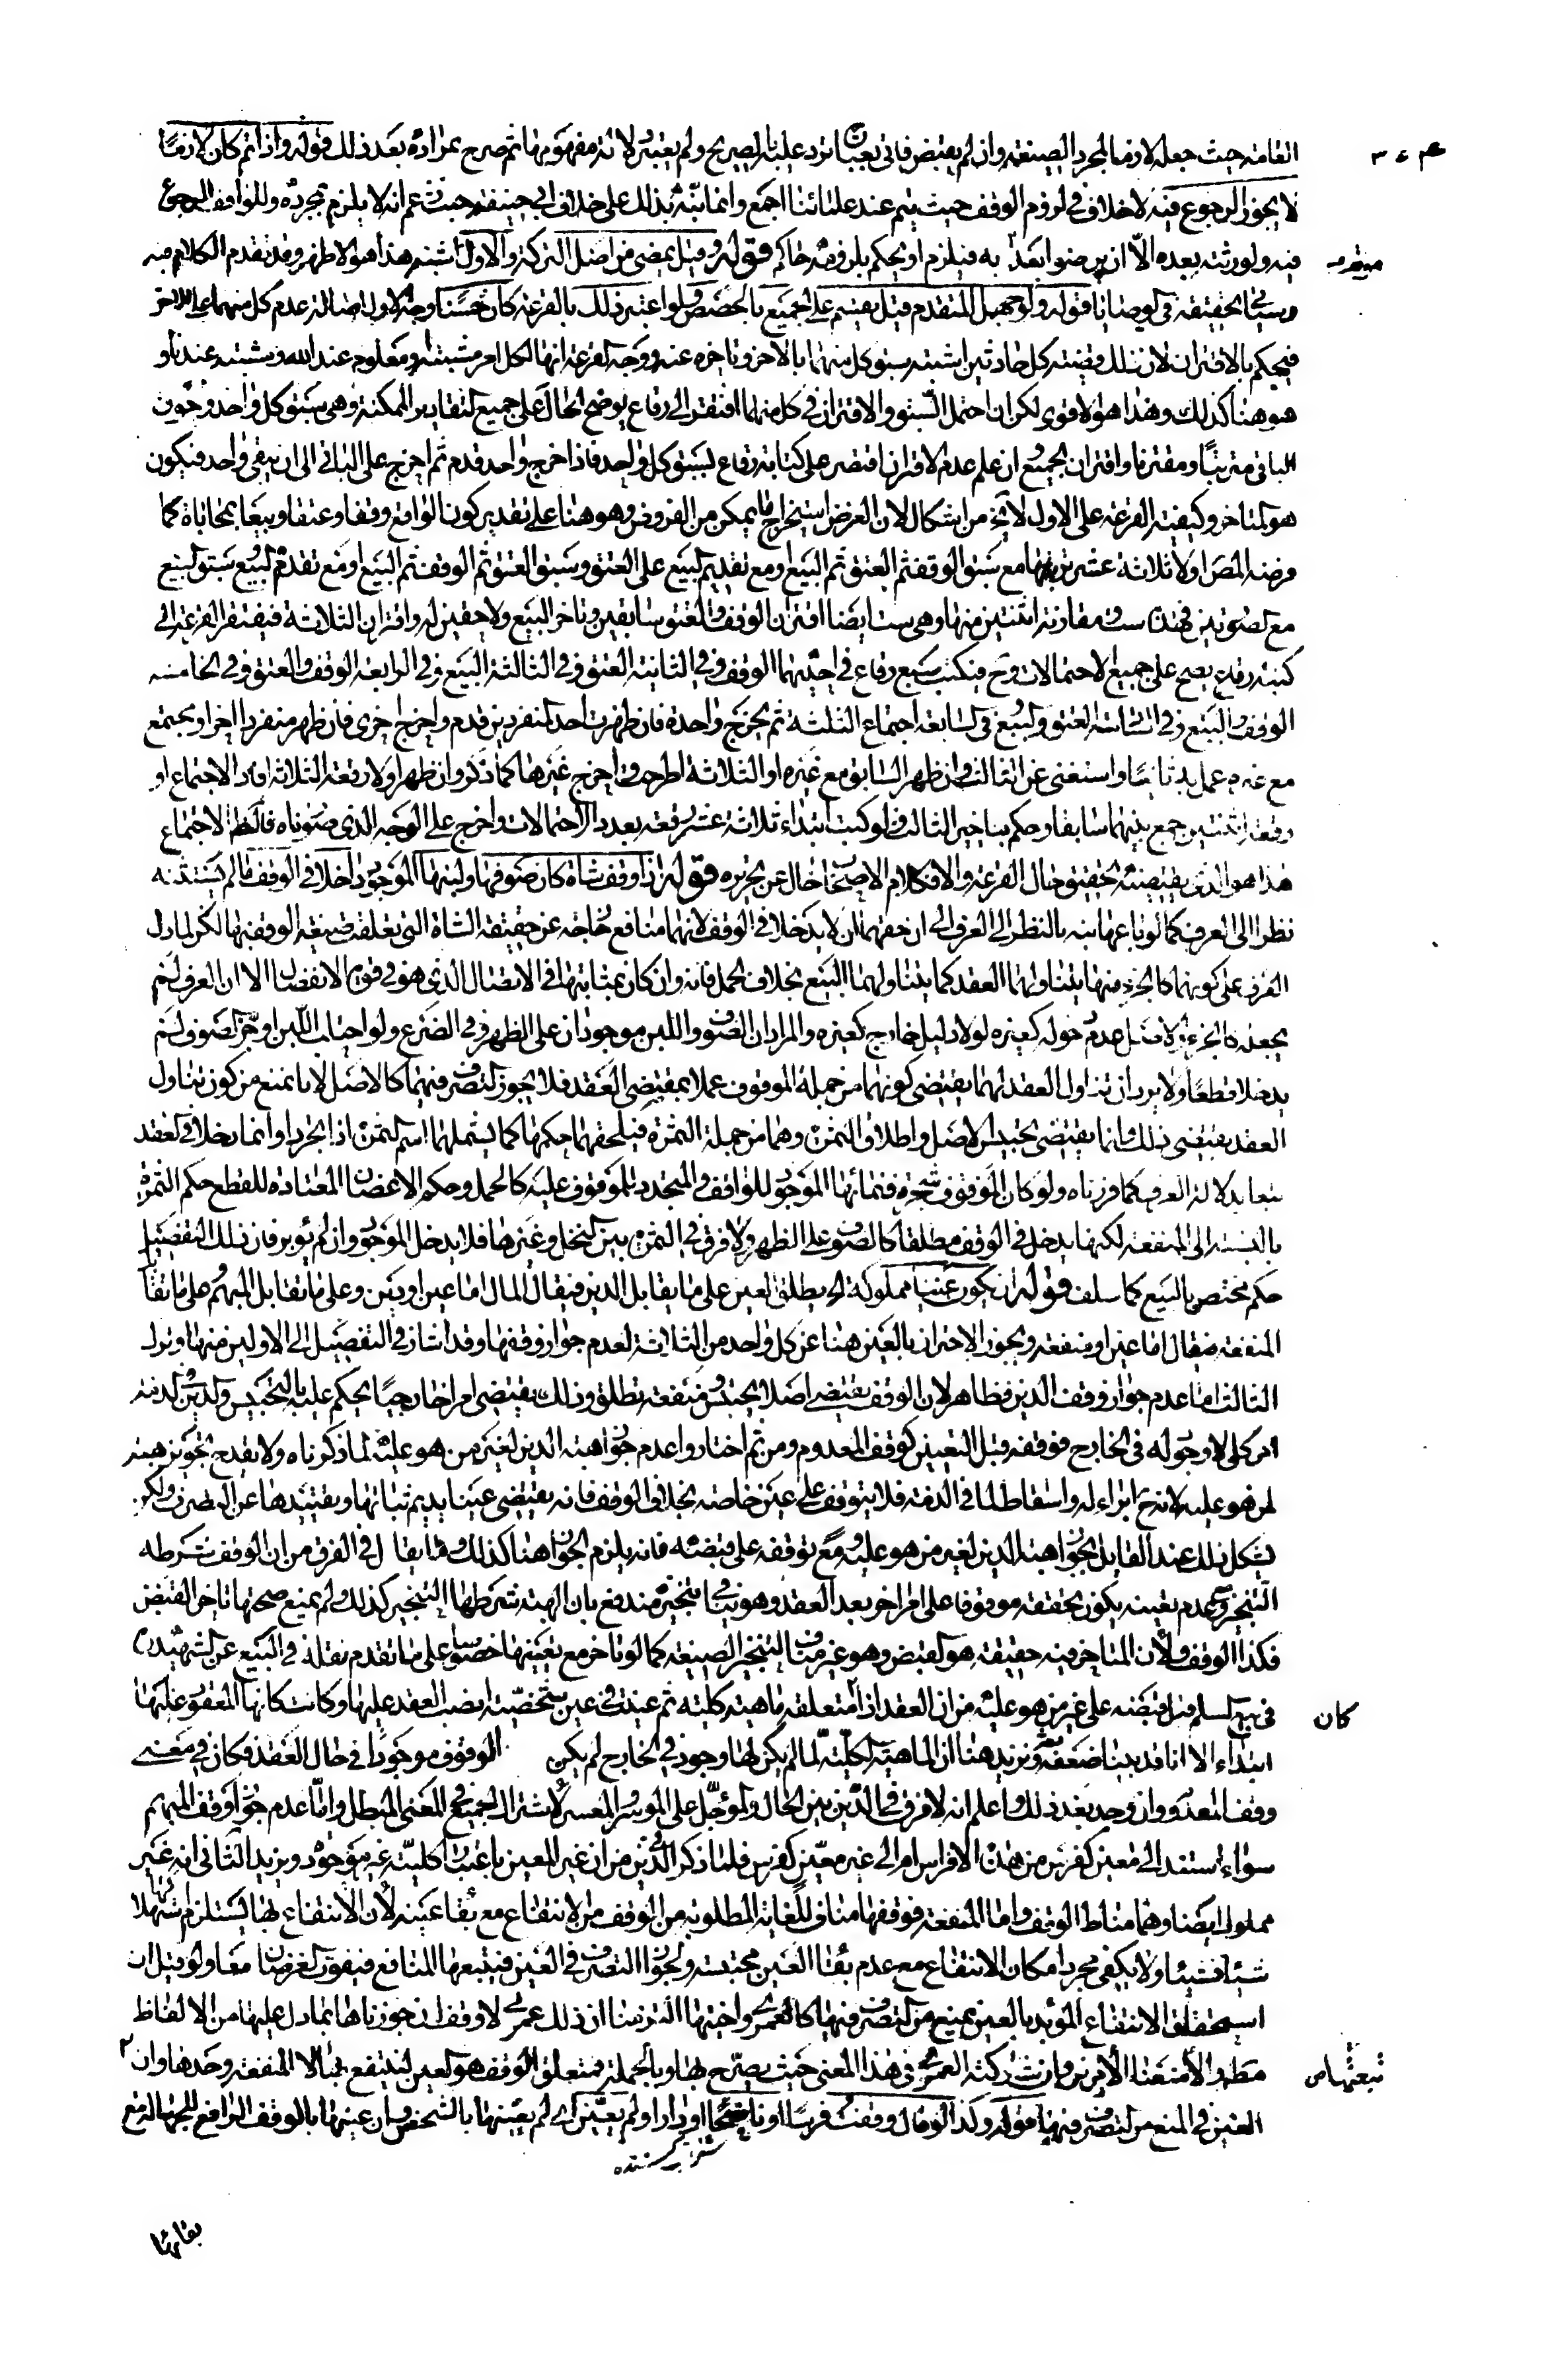 العامة حيث جعله لازما بمجرد الصيغة وان لم يقبض فاتى بعبارة ترد عليه بالصريح ولم يعتبر لانه مفهومها ثم صرح بمراده بعد ذلك قوله واذا تم كان لازما
لا يجوز الرجوع فيه لا خلاف في لزوم الوقف حيث يتم عند علمائنا اجمع وانما نبه بذلك على خلاف ابي حنيفة حيث زعم انه لا يلزم بمجرده وللواقف الرجوع
فيه ولورثته بعده الا ان يرضوا بعد به فيلزم او يحكم بلزومه حاكم قوله وقيل يمضي من اصل التركة والاول اشبه هذا هو الاظهر وقد تقدم الكلام فيه
وسياتي تحقيقه في الوصايا قوله ولو جهل المتقدم قيل يقسم على الجميع بالحصص ولو اعتبر ذلك بالقرعة كان حسنا وجه الاول اصالة عدم كل منهما على الاخر
فيحكم بالاقتران لان ذلك قضية كل حادثين اشتبه سبق كل منهما بالاخر وتاخره عنه ووجه القرعة انها لكل امر مشتبه ومعلوم عند الله ومشتبه عندنا و
هو هنا كذلك وهذا هو الاقوى لكن ان احتمل السبق والاقتران في كل منهما افتقر الى رقاع يوضح الحال على جميع التقادير الممكنة وهي سبق كل واحد وكون
الباقي مترتبا ومقترنا واقتران الجميع وان علم عدم الاقتران اقتصر على كتابة رقاع لسبق كل واحد فاذا خرج واحد قدم ثم اخرج على الباقي الى ان يبقى واحد فيكون
هو المتاخر وكيفية القرعة على الاول لا تخ من اشكال لان الغرض استخراج ما يمكن من الفروض وهو هنا على تقدير كون الواقع وقفا وعتقا وبيعا بمحاباة كما
فرضه المص اولا ثلاثة عشر ترتيبها مع سبق الوقف ثم العتق ثم البيع او مع تقديم البيع على العتق وسبق العتق ثم الوقف ثم البيع او مع تقدم البيع سبق البيع
مع الصورتين فهذه ست ومقارنة اثنتين منها وهي ست ايضا اقتران الوقف والعتق سابقين وتاخر البيع ولاحقين له واقتران الثلاثة فيفتقر القرعة الى
كتبة رقاع يصح على جميع الاحتمالات وح فيكتب سبع رقاع في احديهما الوقف وفي الثانية العتق وفي الثالثة البيع وفي الرابعة الوقف والعتق وفي الخامسة
الوقف والبيع وفي السادسة العتق والبيع وفي السابعة اجتماع الثلثة ثم يخرج واحدة فان ظهرت احد المنفردين قدم واخرج اخرى فان ظهر منفردا اخر او مجتمع
مع غيره عمل به ثانيا واستغنى عن الثالث وان ظهر السابق مع غيره او الثلاثة اطرحت واخرج غيرها كما ذكر وان ظهر اولا رقعة الثلاثة افاد الاجتماع او
رقعة اثنتين جمع بينهما سابقا وحكم بتاخير الثالث فلو كتبت ابتداء ثلاثة عشر رقعة بعدد الاحتمالات واخرج على الوجه الذي صورناه فالظ الاجتماع
هذا هو الذي يقتضيه تحقيق حال القرعة والا فكلام الاصحاب خال عن تحريره قوله اذا وقف شاة كان صوفها ولبنها الموجود داخلا في الوقف ما لم يستثنه
نظرا الى العرف كما لو باعها نبه بالنظر الى العرف الى ان حقهما ان لا يدخلا في الوقف لانهما منافع خارجة عن حقيقة الشاة التي تعلقت صيغة الوقف بها لكن لما دل
العرف على كونهما كالجزء منها يتناولهما العقد كما يتناولهما البيع بخلاف الحمل فانه وان كان بمثابتهما في الاتصال الذي هو في قوة الانفصال الا ان العرف لم
يجعله كالجزء والاصل عدم دخوله كغيره لولا دليل خارج كغيره والمراد ان الصوف واللبن موجودان على الظهر وفي الضرع ولو احتلب اللبن او جز الصوف لم
يدخلا قطعا ولا يرد ان تناول العقد لهما يقتضي كونهما من جملة الموقوف عملا بمقتضى العقد فلا يجوز التصرف فيهما كالاصل لانا نمنع من كون تناول
العقد يقتضي ذلك وانما يقتضي تحبيس الاصل واطلاق الثمرة وهما من جملة الثمرة فيلحقهما حكمها كما يشملهما اسم الثمرة اذا تجردا وانما دخلا في العقد
تبعا بدلالة العرف كما قررناه ولو كان الموقوف شجرة فثمارتها الموجود للواقف والمتجدد للموقوف عليه كالحمل وحكم الاغصان المعتادة للقطع حكم الثمرة
بالنسبة الى المنفعة لكنها يدخل في الوقف مطلقا كالصوف على الظهر ولا فرق في الثمرة بين النخل وغيرها فلا يدخل الموجود وان لم يؤبر فان ذلك التفصيل
حكم مختص بالبيع كما سلف قوله ان يكون عينا مملوكة الخ يطلق العين على ما يقابل الدين فيقال المال اما عين او دين وعلى ما تقابل المبهم وعلى ما تقابل
المنفعة فيقال اما عين او منفعة ويجوز الاحتراز بالعين هنا عن كل واحد من الثلاثة لعدم جواز وقفها وقد اشار في التفصيل الى الاولين منها وترك
الثالث اما عدم جواز وقف الدين فظاهر لان الوقف يقتضي اصلا يحبس ومنفعة تطلق وذلك يقتضي امرا خارجيا يحكم عليه بالتحبيس والدين في الذمة
امر كلي لا وجود له في الخارج فوقفه قبل التعيين كوقف المعدوم ومن ثم اختاروا عدم جواز هبة الدين لغير من هو عليه لما ذكرناه ولا يقدح تجويز هبته
لمن هو عليه لانه ح ابراء له واسقاط لما في الذمة فلا يتوقف على عين خاصة بخلاف الوقف فانه يقتضي عينا يديم ثباتها ويقيدها عن التصرف ولكن
يشكل ذلك عند القايل بجواز هبة الدين لغير من هو عليه ومع توقفه على قبضه فانه يلزم الجواز هنا كذلك وما يقال في الفرق من ان الوقف شرطه
التنجيز ومع عدم تعيينه يكون تحققه موقوفا على امر اخر بعد العقد وهو ينافي تنجيزه مندفع بان الهبة شرطها التنجيز كذلك ولم يمنع صحتها تاخر القبض
فكذا الوقف ولان المتاخر فيه حقيقة هو القبض وهو غير مناف لتنجيز الصيغة كما لو تاخر مع تعيينها خصوصا على ما تقدم نقله في البيع عن الشهيد ره
في بيع السلم قبل قبضه على غير من هو عليه من ان العقد اذا متعلقه ماهية كلية ثم عينت في عين شخصية انصب العقد عليها وكانت كانها المعقود عليها
ابتداء الا انا قد بينا ضعفه ثم ونزيد هنا ان الماهية الكلية لما لم يكن لها وجود في الخارج لم يكن الموقوف موجودا في حال العقد فكان في معنى
وقف المعدوم وان وجد بعد ذلك واعلم انه لا فرق في الدين بين الحال والمؤجل على الموسر والمعسر لاشتراك الجميع في المعنى المبطل واما عدم جواز وقف المبهم
سواء استند الى معين كفرس من هذه الافراس ام الى غير معين كفرس فلما ذكر في الدين من ان غير المعين باعتبار كليته غير موجود ويزيد الثاني انه غير
مملوك ايضا وهما مناط الوقف واما المنفعة فوقفها مناف للغاية المطلوبة من الوقف من الانتفاع مع بقاء عينه لان الانتفاع بها يستلزم استهلاكها
شيئا فشيئا ولا يكفي مجرد امكان الانتفاع مع عدم بقاء العين محتبسة ولجواز التصرف في العين فيتبعها المنافع فيفوت الغرضان معا ولو قيل ان
استحقاق الانتفاع المؤبد بالعين يمنع من التصرف فيها كالعمرى واختها التزمنا ان ذلك عمرى لا وقف ان جوزناها بما دل عليها من الالفاظ
مط والا منعنا الامرين وان شاركته العمرى في هذا المعنى حيث يصرح بها وبالجملة فمتعلق الوقف هو العين لينتفع بها لا المنفعة وحدها وان
العين في المنع من التصرف فيها قوله وكذا لو قال وقفت فرسا او ناضحا او دارا ولم يعين اي لم يعينها بالشخص وان عينها بالوقف الرافع للجهالة مع
كان
تبعتها ص
بقائها